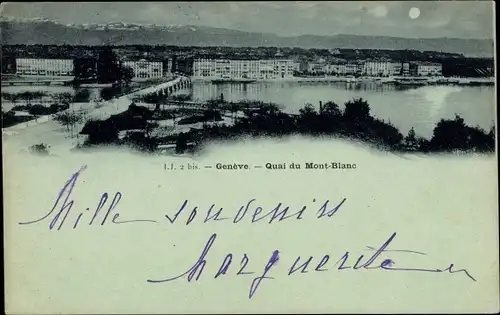 I.J. 2 bis. — Genève. — Quai du Mont-Blanc
Mille souvenirs
Marguerite